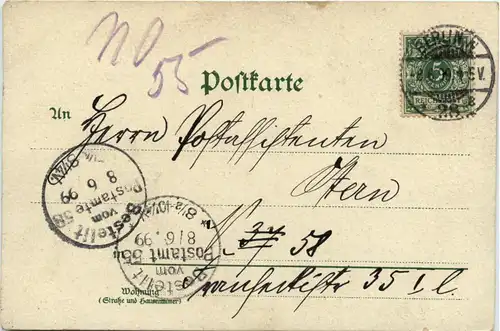 NO
55
BERLIN.W
5
Postkarte
An
Herrn Postassistenten
Stern
Bestellt
vom
Postamte 58
8 6 99
N. 37 58
Bestellt
vom
Postamt 55
8/6.99
8½-10¼V
in
35 I l.
Wohnung
(Straße und Hausnummer)